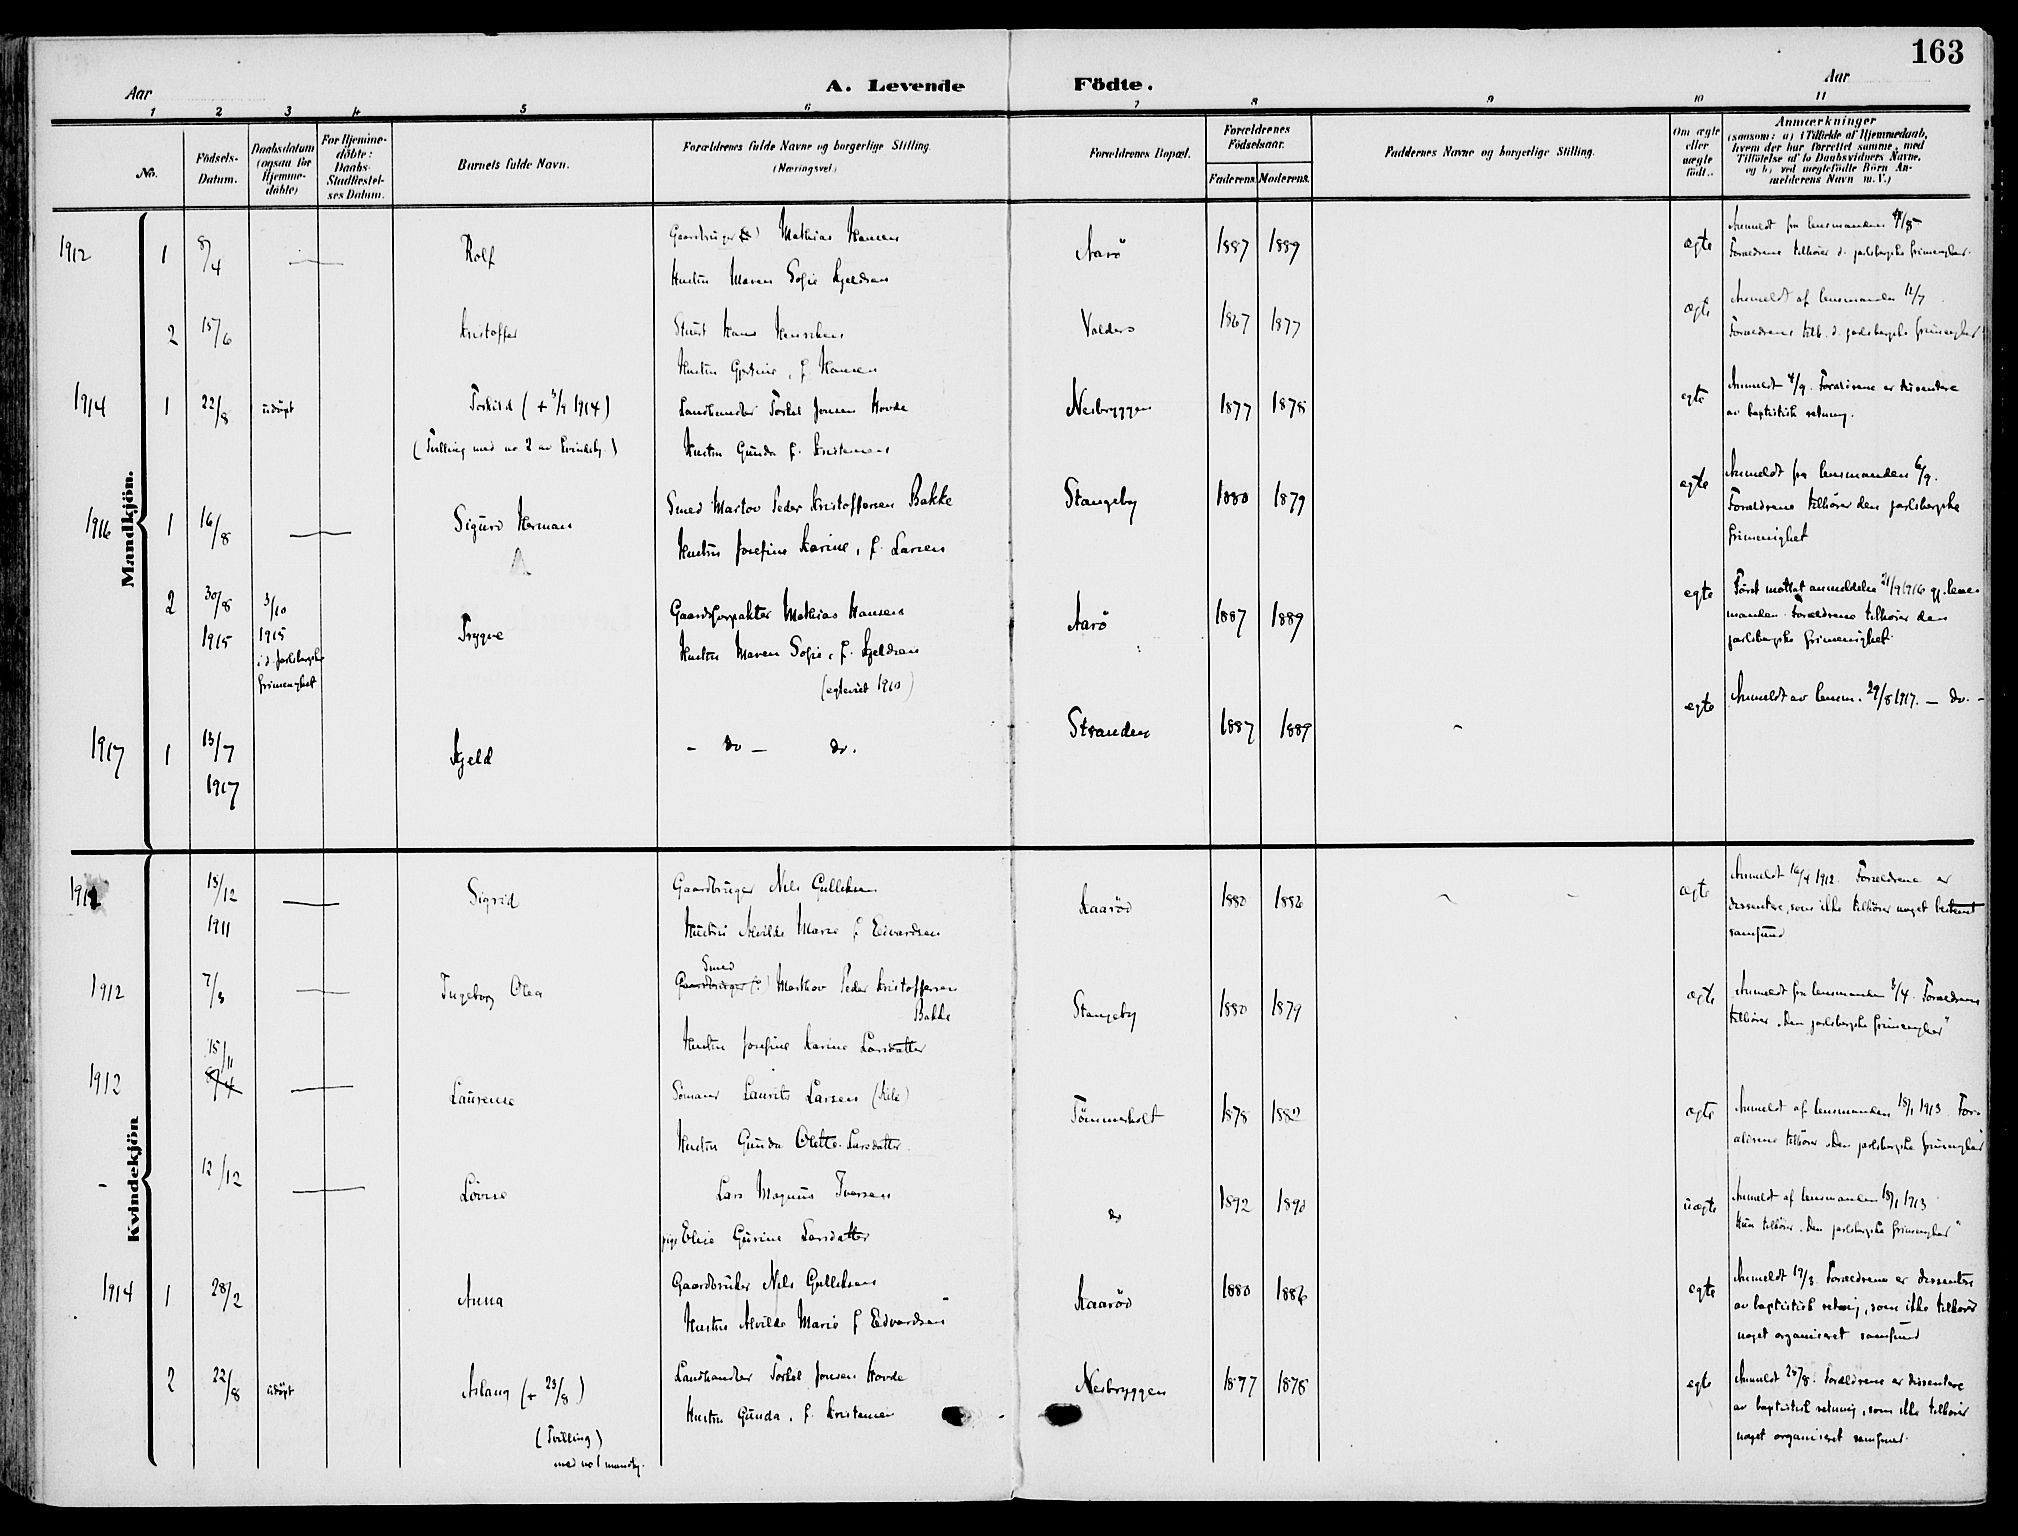 163
Aar
A. Levende Födte.
Aar
1 2 3 4 5 6 7 8 9 10 11
No.
Födsels-Datum.
Daabsdatum (ogsaa for Hjemme-döbte)
For Hjemme-döbte: Daabs-Stadfæstel-ses Datum.
Barnets fulde Navn.
Forældrenes fulde Navne og borgerlige Stilling.
(Næringsvei)
Forældrenes Bopæl.
Forældrenes Födselsaar.
Faderens. Moderens.
Faddernes Navne og borgerlige Stilling.
Om ægte eller uægte födt.
Anmærkninger
(saasom: a) i Tilfælde af Hjemmedaab, hvem der har forrettet samme, med Tilföielse af to Daabsvidners Navne, og b) ved uægtefödte Börn An-melderens Navn m. V.)
Mandkjön.
1912 1 8/4 — Rolf
Gaardbruger Mathias Hansen
Hustru Maren Sofie Kjeldsen
Aarö 1887 1889 ægte
Anmeldt fra lensmanden
Forældrene tilhører d. jarlsbergske frimenighed.
2 15/6 Kristoffer
Hans Henriksen
Hustru f. Hansen
Valderö 1867 1877 ægte
Anmeldt af lensmanden 12/7
Forældrene tilh. d. jarlsbergske frimenighed
1914 1 22/8 udøpt Torkild (+ 3/9 1914)
(Tvilling med no 2 av kvindekj.)
Landhandler Torkel Jonsen Hovde
Hustru Gunda f. Kristensen
Nesbryggen 1877 1878 egte
Anmeldt 4/9. Forældrene er dissentere
av baptistisk retning.
1916 1 16/8 — Sigurd Herman
Smed Peder Kristoffersen Bakke
Hustru Josefine Karine, f. Larsen
Stangeby 1880 1879 egte
Anmeldt fra lensmanden 6/9.
Forældrene tilhører den jarlsbergske
frimenighet
2 30/8 1915
3/10 1915 i d. jarlsbergske frimenighet
Trygve
Gaardsforpakter Mathias Hansen
Hustru Maren Sofie, f. Kjeldsen
(egteviet 1910)
Aarö 1887 1889 egte
Først mottat anmeldelse 21/9 1916 gj. lens-
manden. Forældrene tilhører den
jarlsbergske frimenighet.
1917 1 13/7 1917 Kjeld
— do — do.
Stranden 1887 1889 egte
Anmeldt av lensm. 29/8 1917. — do. —
Kvindekjön
1912 18/12 1911 — Sigrid
Gaardbruger Nils Gulliksen
Hustru Alvilde Marie f. Edvardsen
Kaaröd 1880 1886 ægte
Anmeldt 16/4 1912. Forældrene er
dissentere, som ikke tilhører noget bestemt
samfund
1912 7/3 — Ingeborg Olea
Smed
Gaardbruger (?) Peder Kristoffersen
Bakke
Hustru Josefine Karine Larsdatter
Stangeby 1880 1879 ægte
Anmeldt fra lensmanden 3/4. Forældrene
tilhører „Den jarlsbergske frimenighed"
1912 15/11 — Laurense
Sömand Laurits Larsen
Hustru Gunda Olette Larsdatter.
Tömmerholt 1878 1882 ægte
Anmeldt af lensmanden 18/1 1913. For-
ældrene tilhører „Den jarlsbergske frimenighed"
- 12/12 — Lovise
Lars Magnus Iversen
pige Elise Gurine Larsdatter
do 1892 1890 uægte
Anmeldt af lensmanden 18/1 1913
Hun tilhører „Den jarlsbergske frimenighed"
1914 1 28/2 Anna
Gaardbruker Nils Gulliksen
Hustru Alvilde Marie f Edvardsen
Kaaröd 1880 1886 egte
Anmeldt 19/3. Forældrene er dissentere
av baptistisk retning, som ikke tilhører
noget organiseret samfund
2 22/8 udøpt Aslaug (+ 23/8)
(Tvilling)
med no 1 mandkj.
Landhandler Torkel Jonsen Hovde
Hustru Gunda, f. Kristensen
Nesbryggen 1877 1878 egte
Anmeldt 25/8. Forældrene er dissentere
av baptistisk retning, som ikke tilhører
noget organiseret samfund.